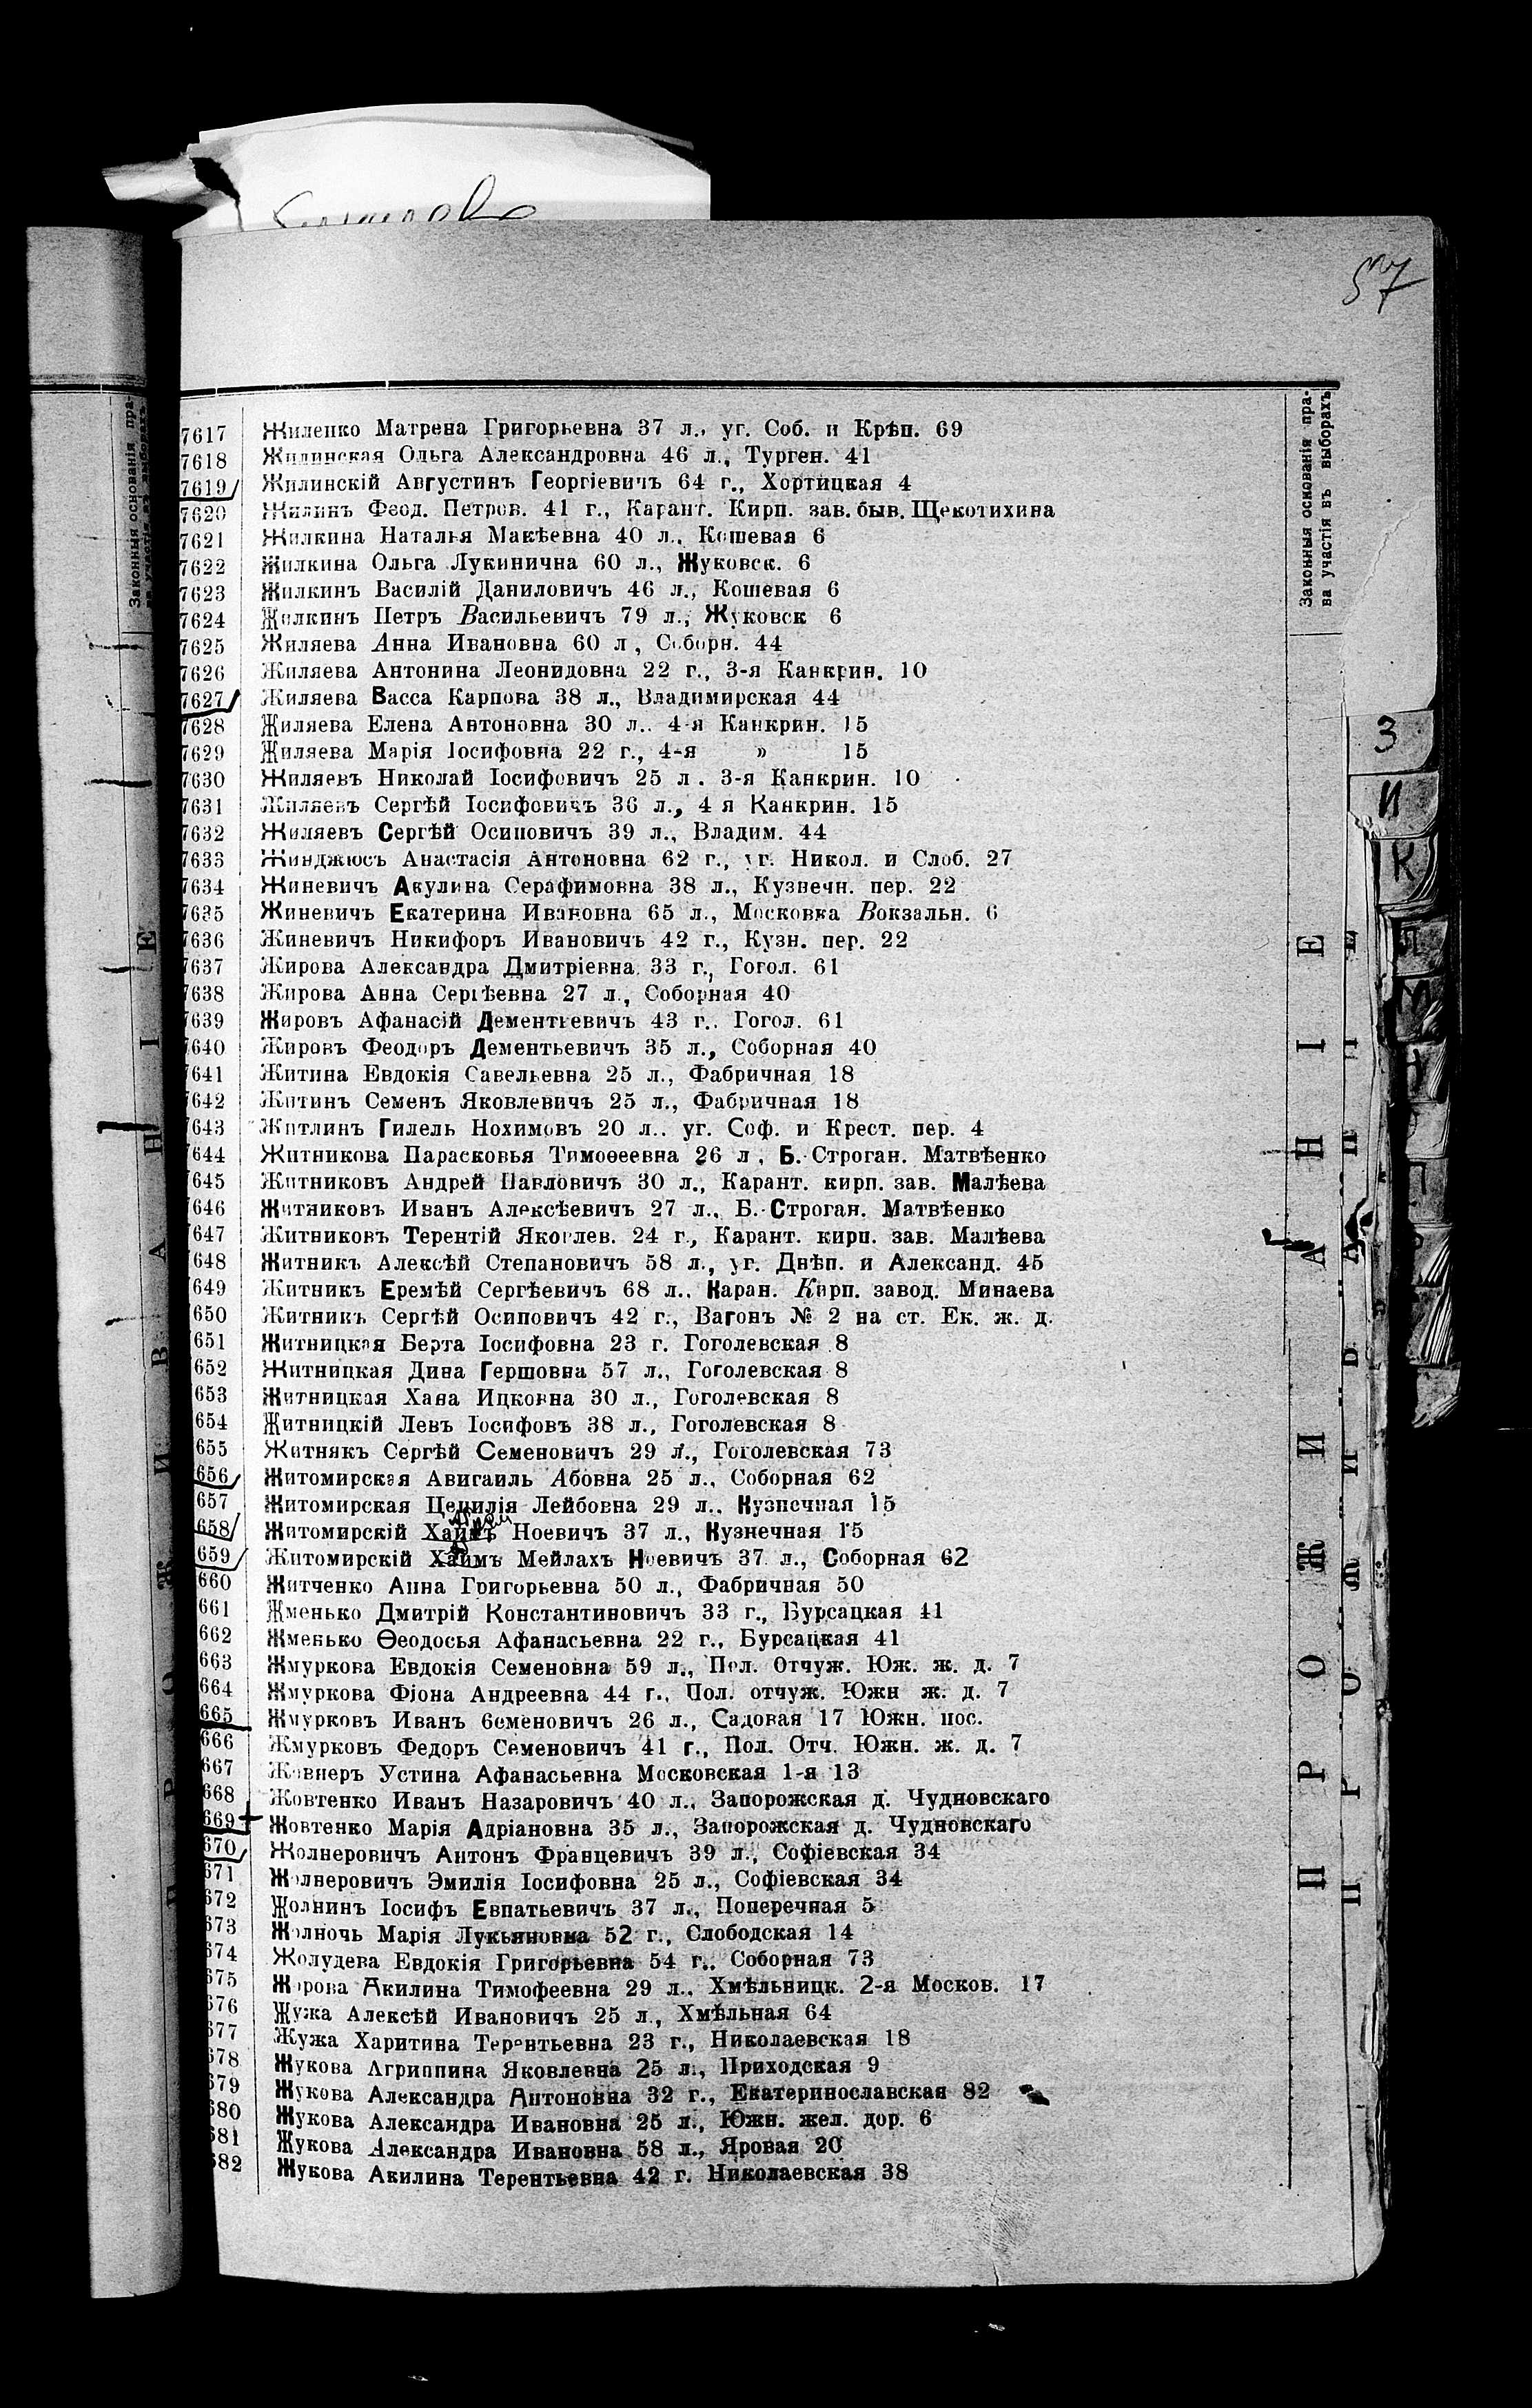 57
Законныя основанія пра-
ва участія въ выборахъ
7617 Жиленко Матрена Григорьевна 37 л., уг. Соб. и Крѣп. 69
7618 Жилинская Ольга Александровна 46 л., Турген. 41
7619 Жилинскій Августинъ Георгіевичъ 64 г., Хортицкая 4
7620 Жилинъ Феод. Петров. 41 г., Карант. Кирп. зав. быв. Щекотихина
7621 Жилкина Наталья Макѣевна 40 л., Кошевая 6
7622 Жилкина Ольга Лукинична 60 л., Жуковск. 6
7623 Жилкинъ Василій Даниловичъ 46 л., Кошевая 6
7624 Жилкинъ Петръ Васильевичъ 79 л., Жуковск 6
7625 Жиляева Анна Ивановна 60 л, Соборн. 44
7626 Жиляева Антонина Леонидовна 22 г., 3-я Канкрин. 10
7627 Жиляева Васса Карпова 38 л., Владимирская 44
7628 Жиляева Елена Антоновна 30 л.. 4-я Канкрин. 15
7629 Жиляева Марія Іосифовна 22 г., 4-я » 15
7630 Жиляевъ Николай Іосифовичъ 25 л. 3-я Канкрин. 10
7631 Жиляевъ Сергѣй Іосифовичъ 36 л., 4 я Канкрин. 15
7632 Жиляевъ Сергѣй Осиповичъ 39 л., Владим. 44
7633 Жинджюсъ Анастасія Антоновна 62 г., уг. Никол. и Слоб. 27
7634 Жиневичъ Акулина Серафимовна 38 л., Кузнечн. пер. 22
7635 Жиневичъ Екатерина Ивановна 65 л., Московка Вокзальн. 6
7636 Жиневичъ Никифоръ Ивановичъ 42 г., Кузн. пер. 22
7637 Жирова Александра Дмитріевна 33 г., Гогол. 61
7638 Жирова Анна Сергѣевна 27 л., Соборная 40
7639 Жировъ Афанасій Дементьевичъ 43 г.. Гогол. 61
7640 Жировъ Феодоръ Дементьевичъ 35 л., Соборная 40
7641 Житина Евдокія Савельевна 25 л., Фабричная 18
7642 Житинъ Семенъ Яковлевичъ 25 л., Фабричная 18
7643 Житлинъ Гилель Нохимовъ 20 л.. уг. Соф. и Крест. пер. 4
644 Житникова Парасковья Тимоѳеевна 26 л, Б. Строган. Матвѣенко
645 Житниковъ Андрей Павловичъ 30 л., Карант. кирп. зав. Малѣева
646 Житниковъ Иванъ Алексѣевичъ 27 л., Б.-Строган. Матвѣенко
647 Житниковъ Терентій Яковлев. 24 г., Карант. кирп. зав. Малѣева
648 Житникъ Алексѣй Степановичъ 58 л., уг. Днѣп. и Александ. 45
649 Житникъ Еремѣй Сергѣевичъ 68 л.. Каран. Кирп. завод. Минаева
650 Житникъ Сергѣй Осиповичъ 42 г., Вагонъ № 2 на ст. Ек. ж. д.
651 Житницкая Берта Іосифовна 23 г. Гоголевская 8
652 Житницкая Дина Гершовна 57 л., Гоголевская 8
653 Житницкая Хана Ицковна 30 л., Гоголевская 8
654 Житницкій Левъ Іосифовъ 38 л., Гоголевская 8
655 Житнякъ Сергѣй Семеновичъ 29 л., Гоголевская 73
656 Житомирская Авигаиль Абовна 25 л., Соборная 62
657 Житомирская Цецилія Лейбовна 29 л.. Кузнечная 15
658 Житомирскій Хаимъ Ноевичъ 37 л., Кузнечная 15
659 Житомирскій Хаимъ Мейлахъ Ноевичъ 37 л., Соборная 62
660 Житченко Анна Григорьевна 50 л., Фабричная 50
661 Жменько Дмитрій Константиновичъ 33 г., Бурсацкая 41
662 Жменько Ѳеодосья Афанасьевна 22 г., Бурсацкая 41
663 Жмуркова Евдокія Семеновна 59 л., Пол. Отчуж. Юж. ж. д. 7
664 Жмуркова Фіона Андреевна 44 г., Пол. отчуж. Южн ж. д. 7
665 Жмурковъ Иванъ Семеновичъ 26 л., Садовая 17 Южн. пос.
666 Жмурковъ Федоръ Семеновичъ 41 г., Пол. Отч. Южн. ж. д. 7
667 Жовнеръ Устина Афанасьевна Московская 1-я 13
668 Жовтенко Иванъ Назаровичъ 40 л., Запорожская д. Чудновскаго
669 Жовтенко Марія Адріановна 35 л., Запорожская д. Чудновскаго
670 Жолнеровичъ Антонъ Францевичъ 39 л., Софіевская 34
671 Жолнеровичъ Эмилія Іосифовна 25 л., Софіевская 34
672 Жолнинъ Іосифъ Евпатьевичъ 37 л., Поперечная 5
673 Жолночь Марія Лукьяновна 52 г., Слободская 14
674 Жолудева Евдокія Григорьевна 54 г.. Соборная 73
675 Жорова Акилина Тимофеевна 29 л., Хмѣльницк. 2-я Москов. 17
676 Жужа Алексѣй Ивановичъ 25 л., Хмѣльная 64
677 Жужа Харитина Терентьевна 23 г., Николаевская 18
678 Жукова Агриппина Яковлевна 25 л., Приходская 9
679 Жукова Александра Антоновна 32 г., Екатеринославская 82
680 Жукова Александра Ивановна 25 л., Южн. жел. дор. 6
681 Жукова Александра Ивановна 58 л., Яровая 20
682 Жукова Акилина Терентьевна 42 г. Николаевская 38
Законныя основанія пра-
ва участія въ выборахъ
ПРОЖИВАНІЕ
З
И
К
Л
М
Н
П